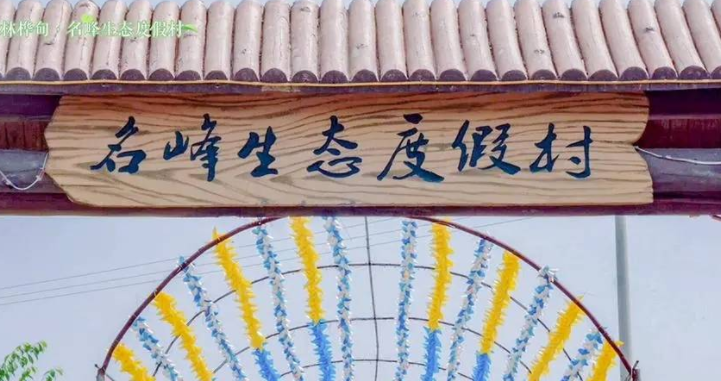 林桦甸，名峰生态度假村
名峰生态度假村